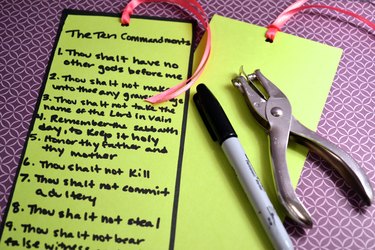 The Ten Commandments
1. Thou shalt have no
other gods before me
2. Thou shalt not
unto thee any
3. Thou shalt not take the
name of the Lord in vain
4. Remember the Sabbath
day, to Keep it holy
5. Honor thy father and
thy mother
6. Thou shalt not Kill
7. Thou shalt not commit
adultery
8. Thou shalt not steal
9. Thou shalt not bear
false witness